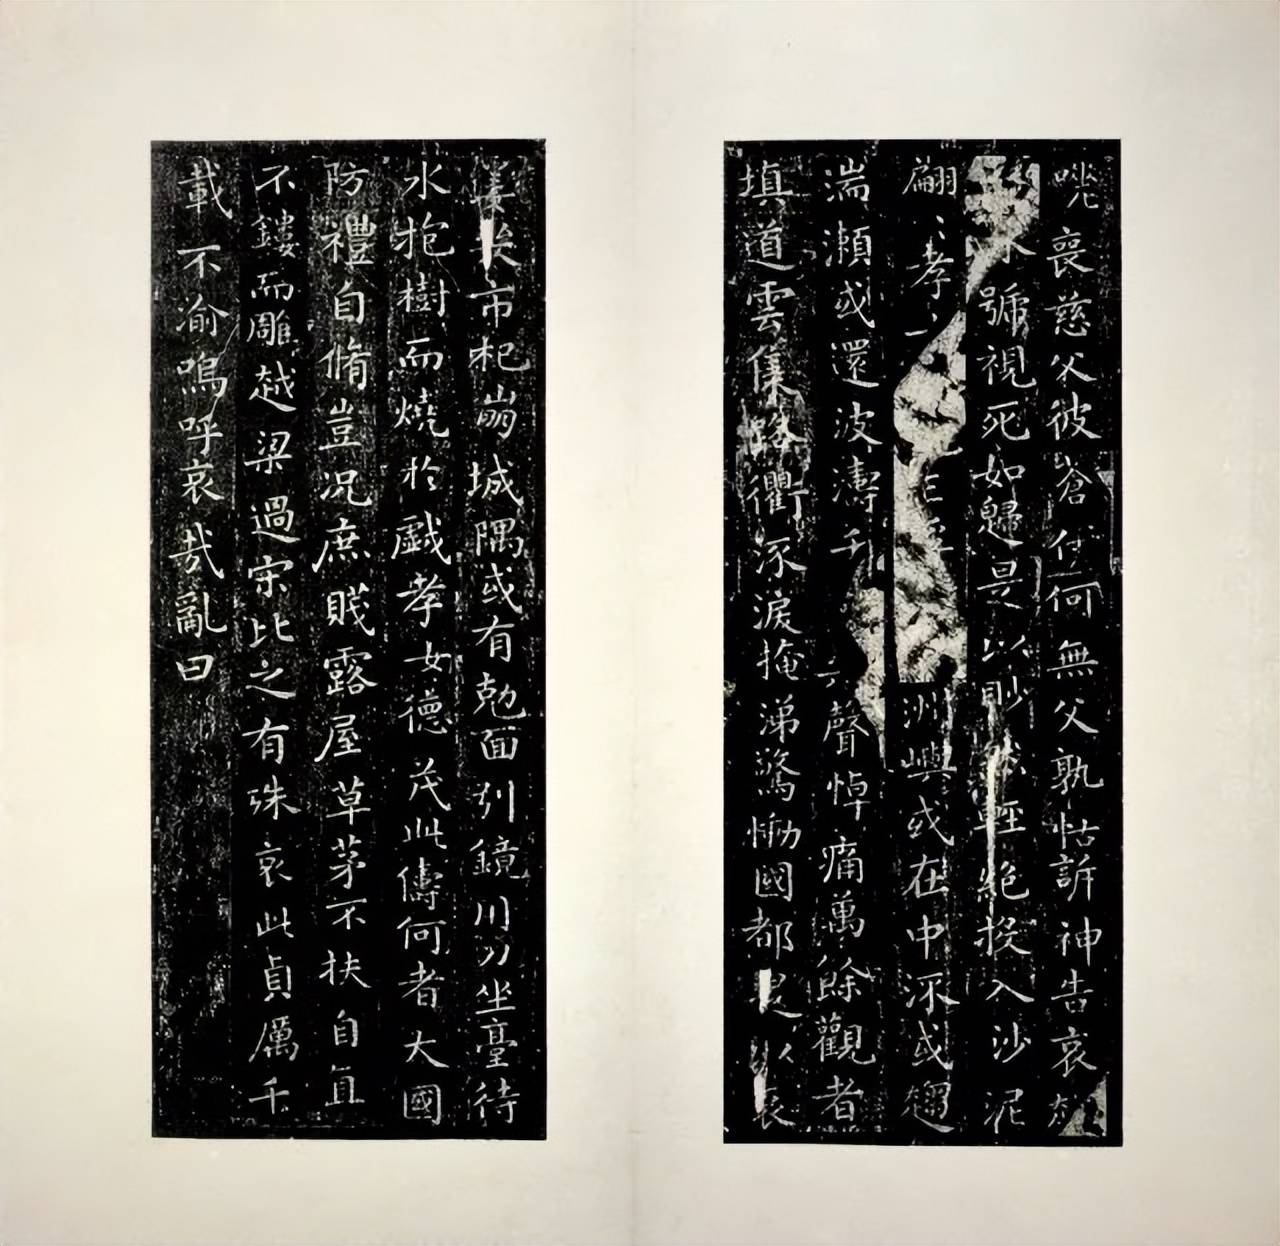 嗟喪慈父彼蒼伊何無父孰怙訴神告哀赴
永號視死如歸是以眇然輕絕投入沙泥
翩、孝洲嶼或在中流或趨
湍瀨或還波濤千聲悼痛萬餘觀者
填道雲集路衢流淚掩涕驚慟國都是以哀
姜哭市杞崩城隅或有尅面引鏡川刀坐臺待
水抱樹而燒於戲孝女德茂此儔何者大國
防禮自脩豈況庶賤露屋草茅不扶自直
不鏤而雕越梁過宋比之有殊哀此貞厲千
載不渝嗚呼哀哉亂曰